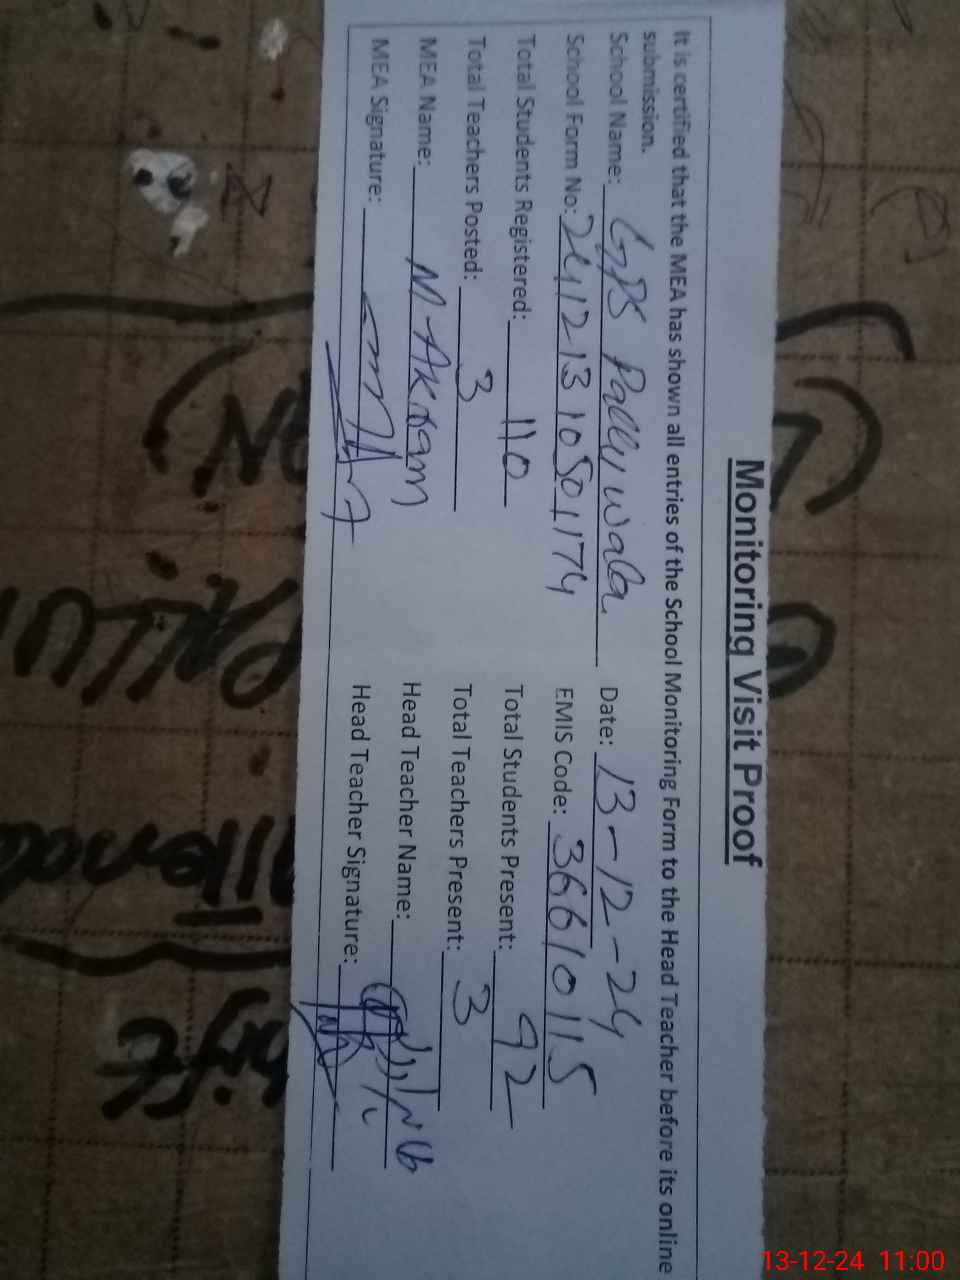 Monitoring Visit Proof
It is certified that the MEA has shown all entries of the School Monitoring Form to the Head Teacher before its online
submission.
School Name: GPS Pallu wala Date: 13-12-24
School Form No: 24121310501174 EMIS Code: 36610115
Total Students Registered: 110 Total Students Present: 92
Total Teachers Posted: 3 Total Teachers Present: 3
MEA Name: M-Akram Head Teacher Name:
MEA Signature: Head Teacher Signature:
13-12-24 11:00